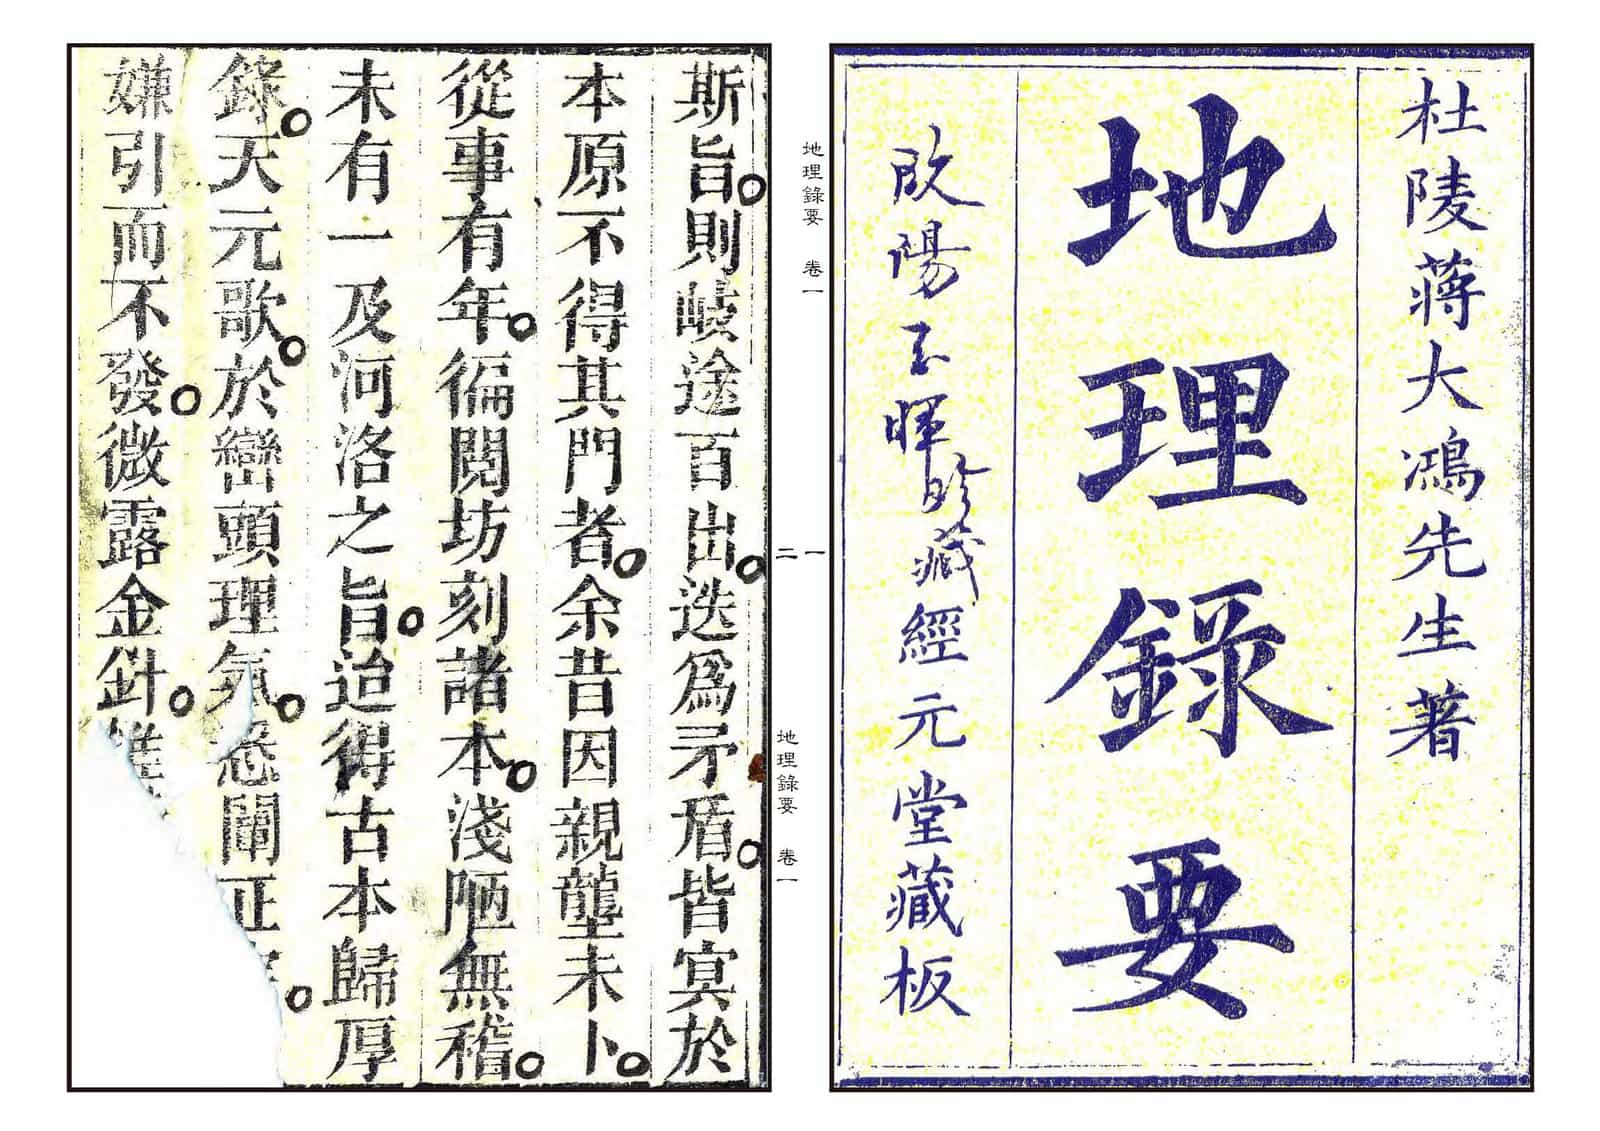 杜陵蔣大鴻先生著
地理錄要
經元堂藏板
地理錄要 卷一
一
二
地理錄要 卷一
斯旨則岐途百出迭爲矛盾皆寘於
本原不得其門者余昔因親壟未卜
從事有年徧閱坊刻諸本淺陋無稽
未有一及河洛之旨迨得古本歸厚
錄天元歌於巒頭理氣悉闡正
嫌引而不發微露金針